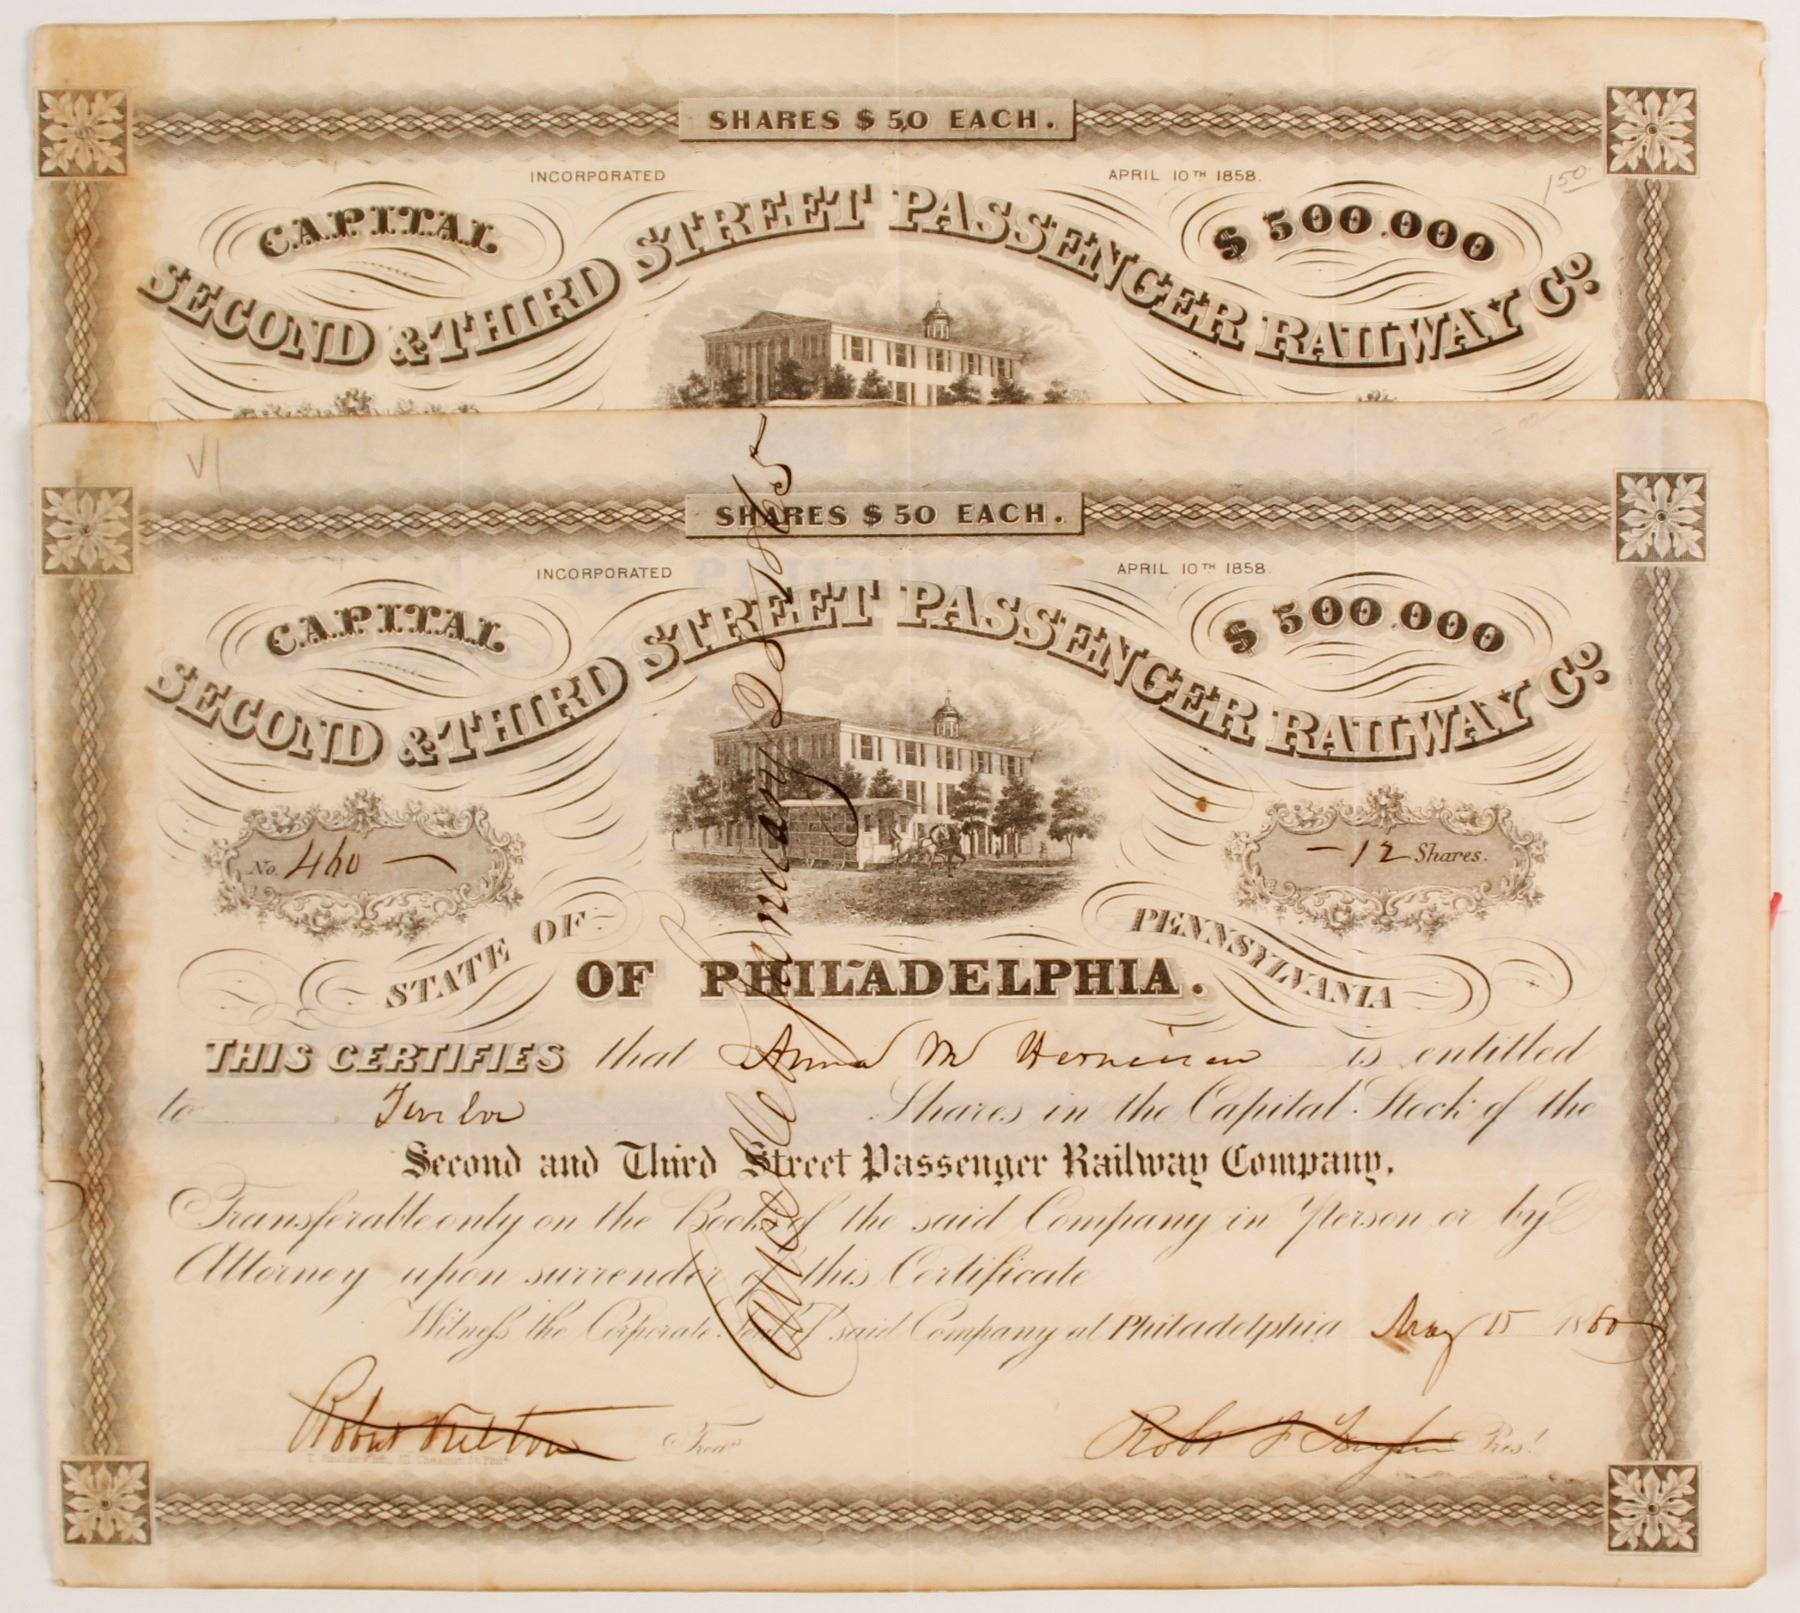 SHARES $ 50 EACH.
INCORPORATED APRIL 10TH 1858.
150
CAPITAL $ 500.000
SECOND & THIRD STREET PASSENGER RAILWAY Co.
VI
SHARES $ 50 EACH.
INCORPORATED APRIL 10TH 1858.
CAPITAL $ 500.000
SECOND & THIRD STREET PASSENGER RAILWAY Co.
No. 460
- 12 Shares.
STATE OF PENNSYLVANIA
OF PHILADELPHIA.
THIS CERTIFIES that Anna M is entitled
to Twelve Shares in the Capital Stock of the
Second and Third Street Passenger Railway Company.
Transferable only on the Books of the said Company in Person or by
Attorney upon surrender of this Certificate
Witness the Corporate Seal of said Company at Philadelphia May 15 1860
Robert Treas
Robt F Pres!
T. Sinclair's lith, Chestnut St. Phila
Cancelled January 1865